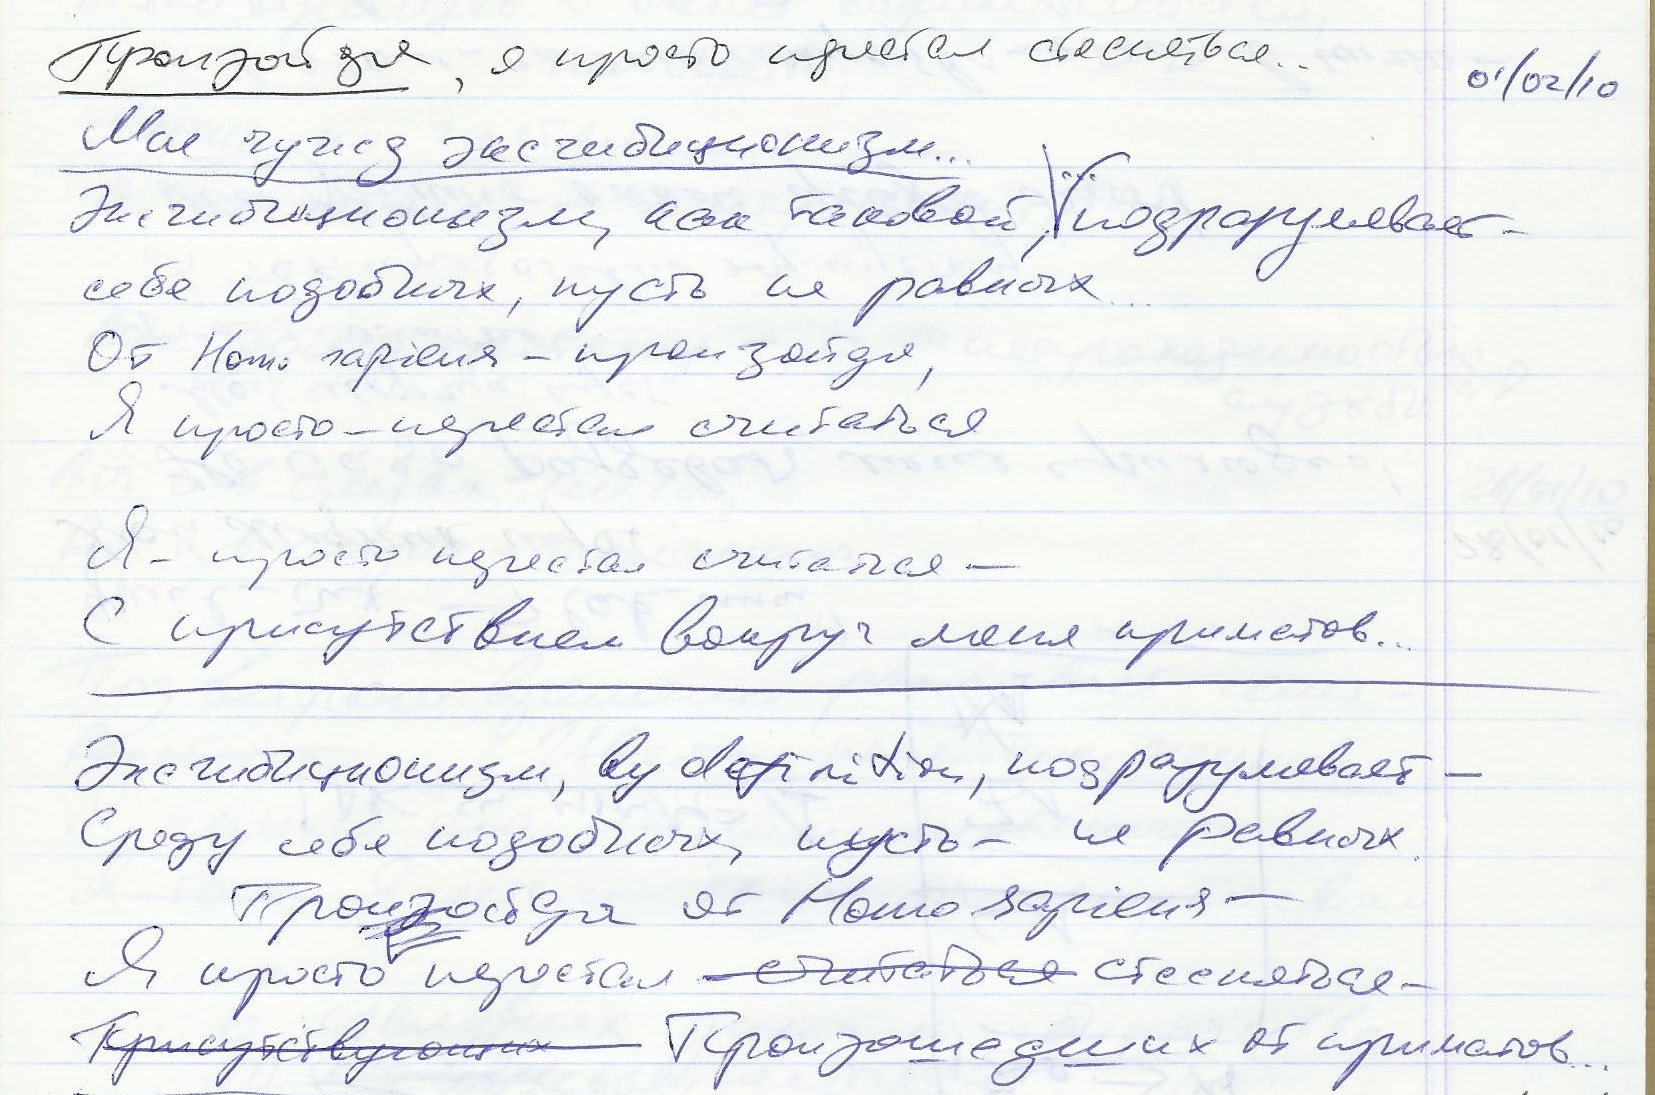 Произойдя, я просто перестал стесняться... 01/02/10
Мне чужд эксгибиционизм...
Эксгибиционизм, как таковой, подразумевает –
себе подобных, пусть не равных...
От Homo sapiens – произойдя,
Я просто – перестал считаться
Я – просто перестал считаться –
С присутствием вокруг меня приматов...
Эксгибиционизм, by definition, подразумевает –
Среду себе подобных, пусть – не равных.
Произойдя от Homo sapiens –
Я просто перестал считаться стесняться –
Присутствующих Произошедших от приматов...